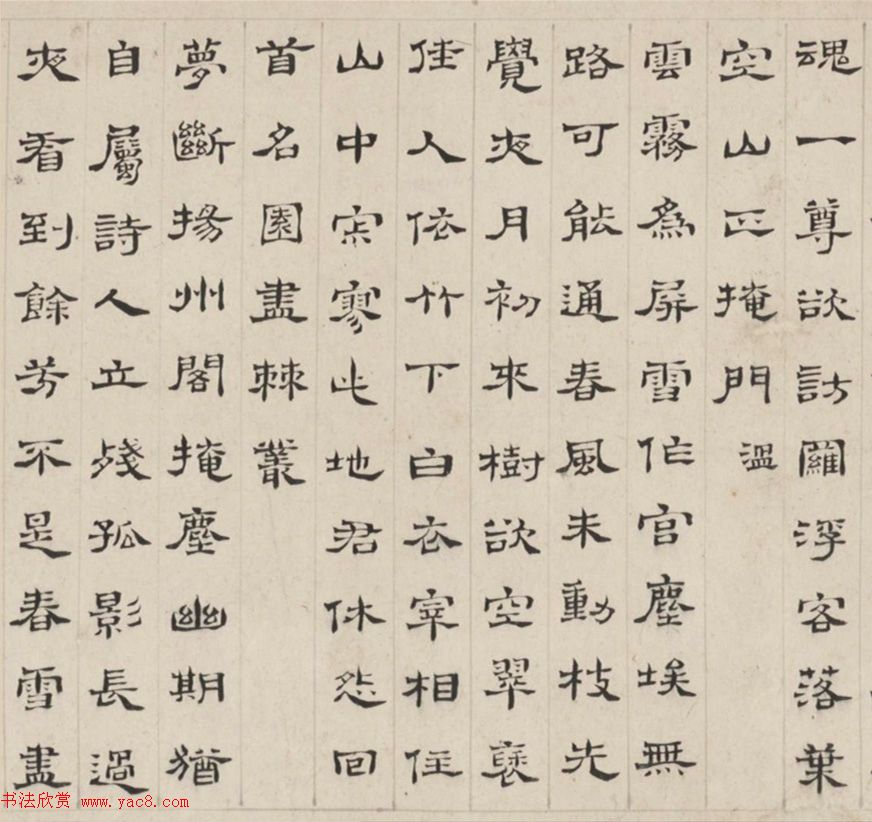 魂一尊欲訪羅浮客落葉
空山正掩門 溫
雲霧為屏雪作宮塵埃無
路可能通春風未動枝先
覺夜月初來樹欲空翠褎
佳人依竹下白衣宰相住
山中寂寥此地君休怨回
首名園盡棘叢
夢斷揚州閣掩塵幽期猶
自屬詩人立殘孤影長過
夜看到餘芳不是春雪盡
书法欣赏 www.yac8.com